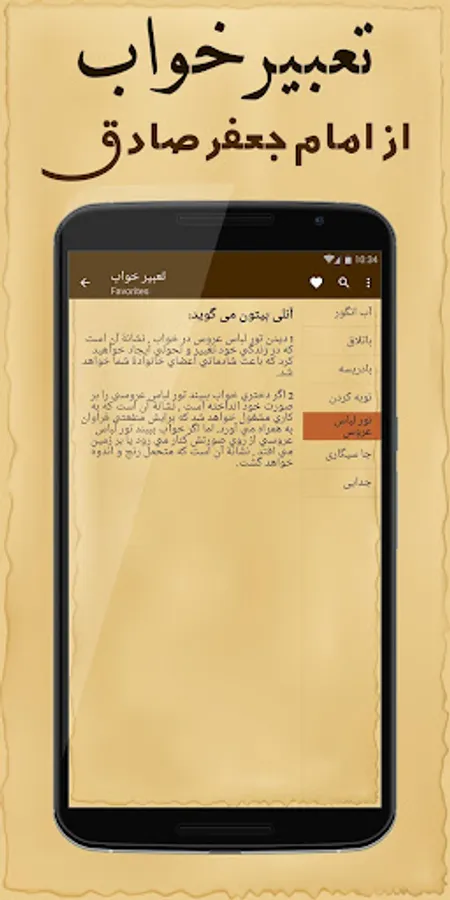 تعبیر خواب
از امام جعفر صادق
10:34
تعبیر خواب
Favorites
آنلی بیتون می گوید:
1 دیدن تور لباس عروس در خواب ، نشانۀ آن است
که در زندگي خود تغییر و تحولي ایجاد خواهید
کرد که باعث شادماني اعضاي خانوادۀ شما خواهد
شد.
2 اگر دختري خواب ببیند تور لباس عروسي را بر
صورت خود انداخته است ، نشانۀ آن است که به
کاري مشغول خواهد شد که برایش منفعتي فراوان
به همراه مي آورد. اما اگر خواب ببیند تور لباس
عروسي از روي صورتش کنار مي رود یا بر زمین
مي افتد ، نشانۀ آن است که متحمل رنج و اندوه
خواهد گشت.
آب انگور
باتلاق
بادریسه
توبه کردن
تور لباس
عروس
جا سیگاری
جدایی